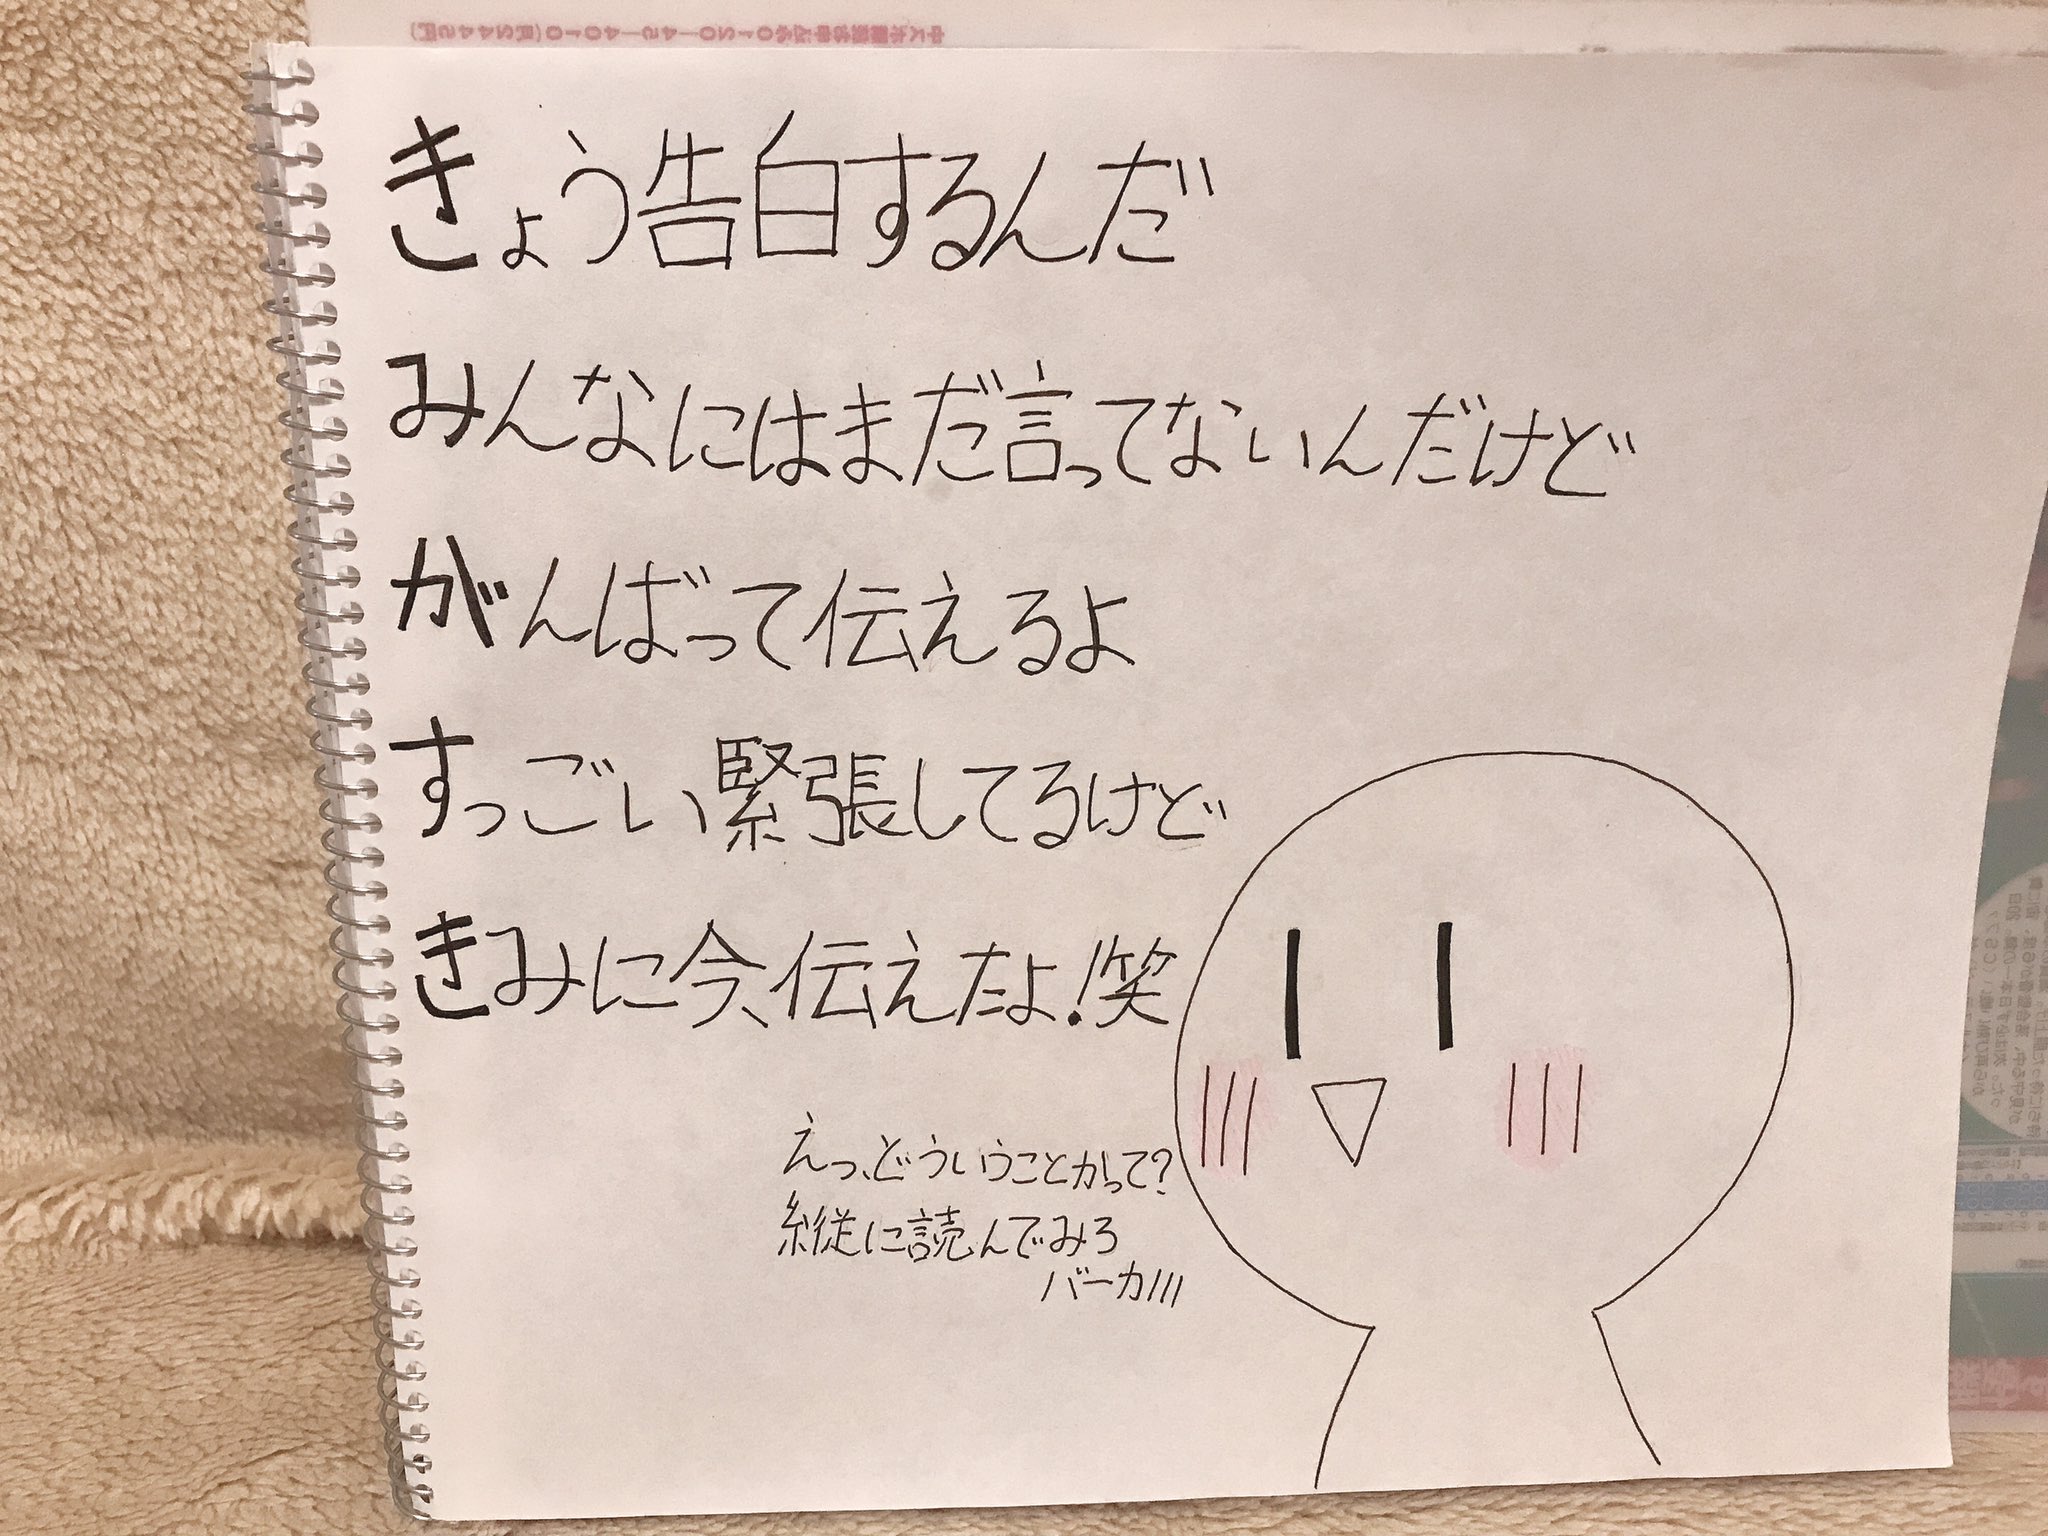 きょう告白するんだ
みんなにはまだ言ってないんだけど
がんばって伝えるよ
すっごい緊張してるけど
きみに今、伝えたよ!笑
えっ、どういうことかって?
縦に読んでみろ
バーカ///